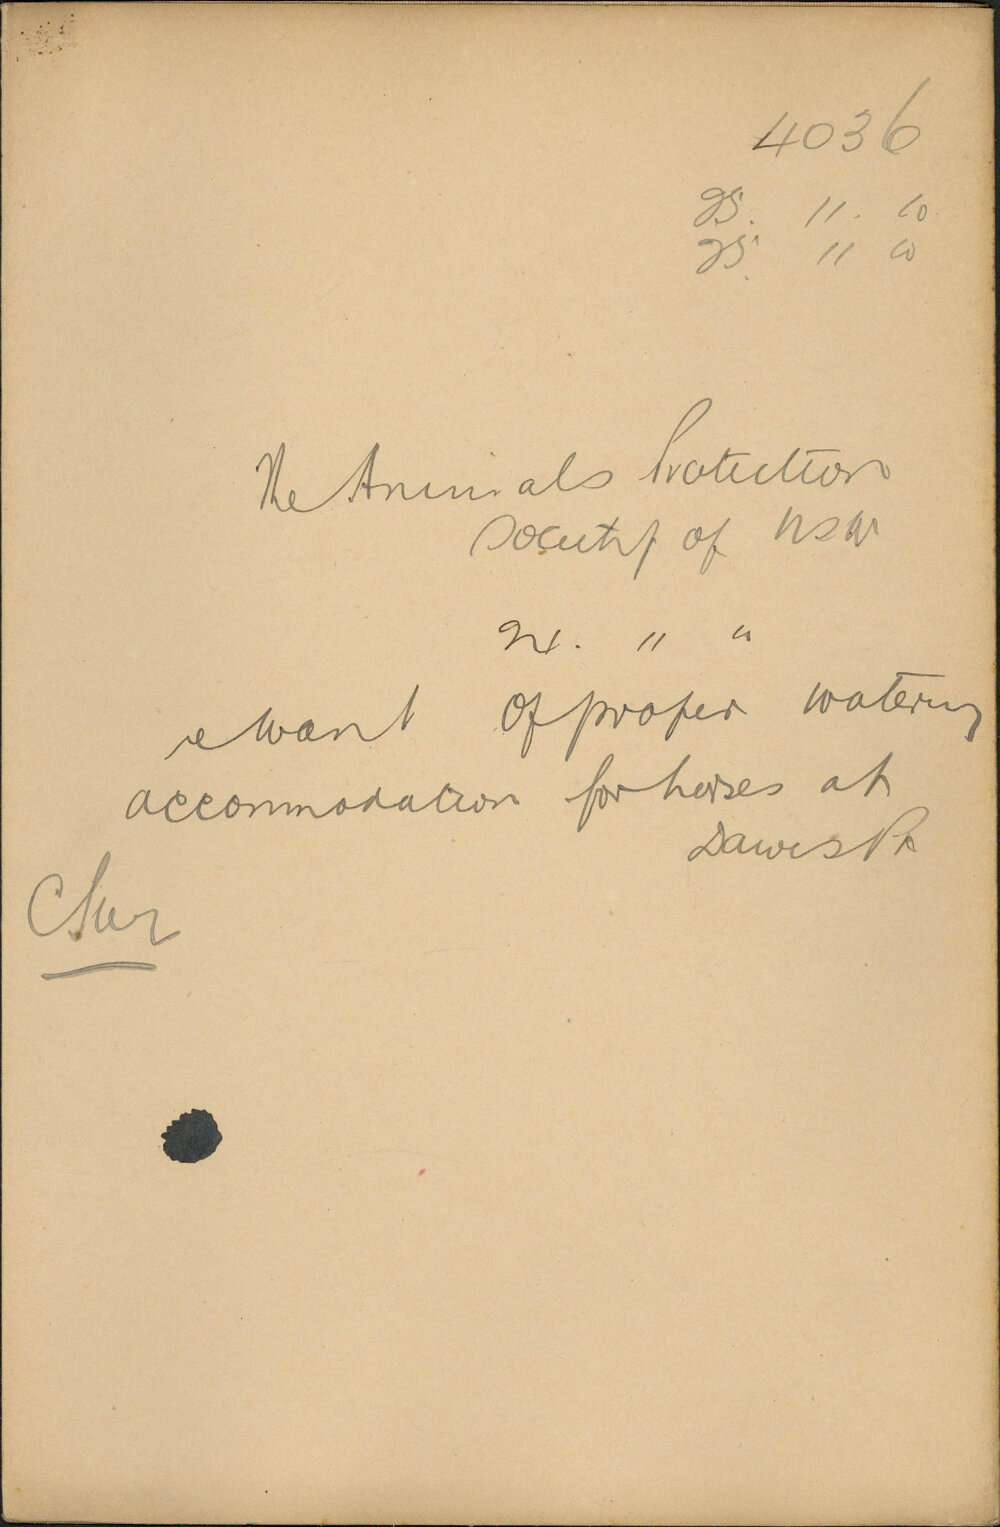 4036
25. 11. 10
25. 11 10
The Animals Protection
Society of NSW
24. " "
re want of proper watering
accommodation for horses at
Dawes Pt
C Sur